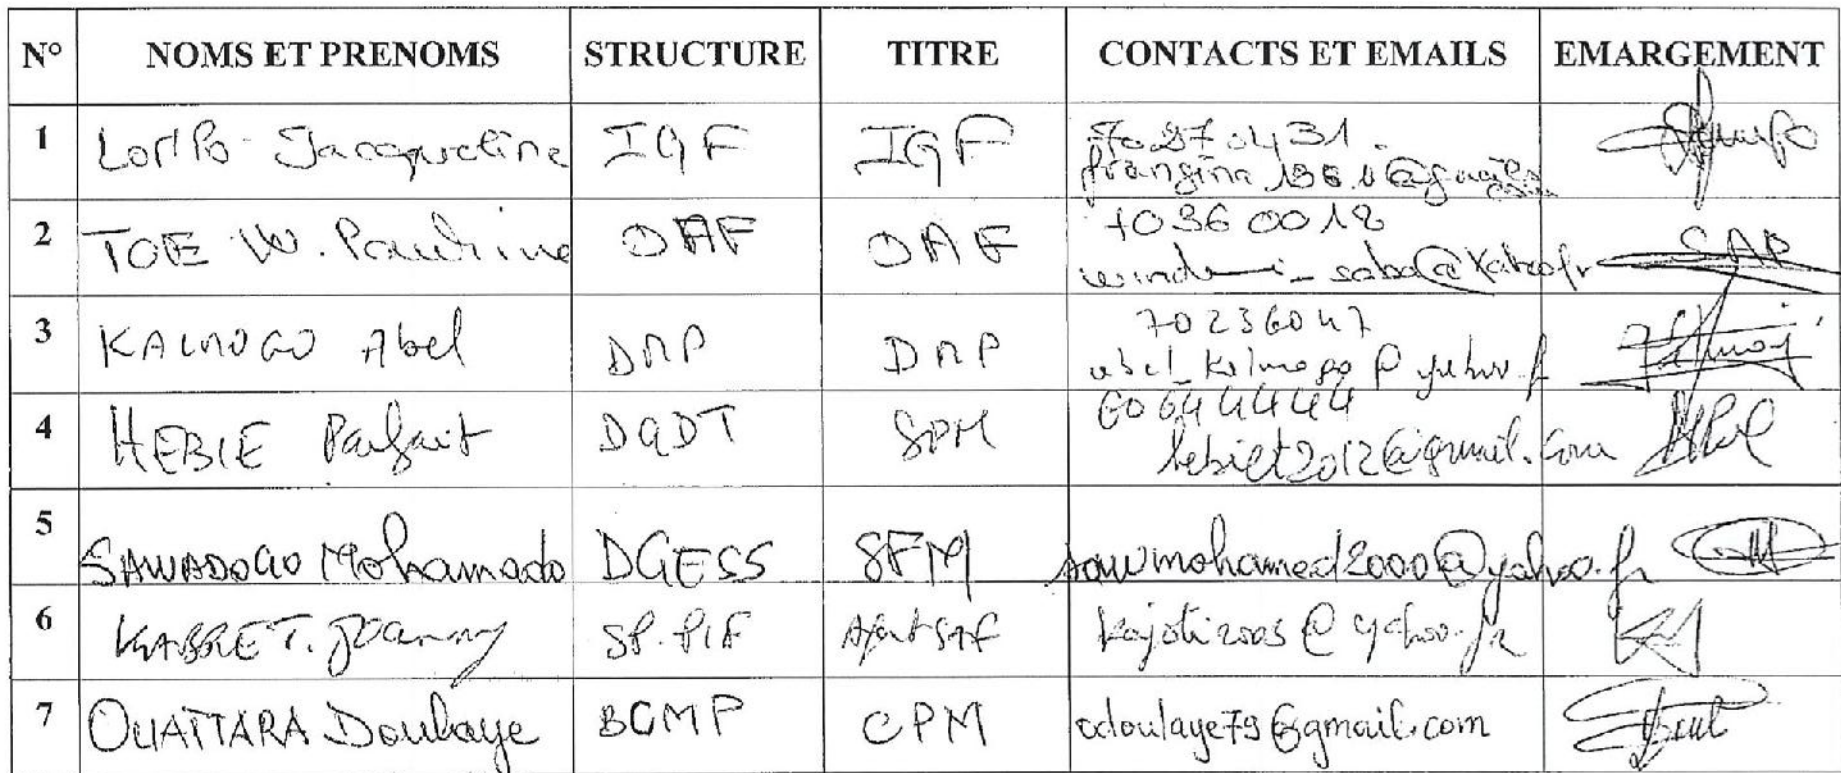 N° NOMS ET PRENOMS STRUCTURE TITRE CONTACTS ET EMAILS EMARGEMENT
1 Lompo Jacqueline IGF IGF 70270431
2 TOE W. Pauline DAF DAF 70360018
3 KALMOGO Abel DMP DMP 70236047
abel_kalmogo@yahoo.f
4 HEBIE Parfait DGDT SPM 60644444
hebiet2012@gmail.com
5 SAWADOGO Mohamado DGESS SFM sawmohamed2000@yahoo.fr
6 KABRE T. Joanny SP-PIF Agent SAF kajoti2003@yahoo.fr
7 OUATTARA Doulaye BCMP CPM odoulaye79@gmail.com